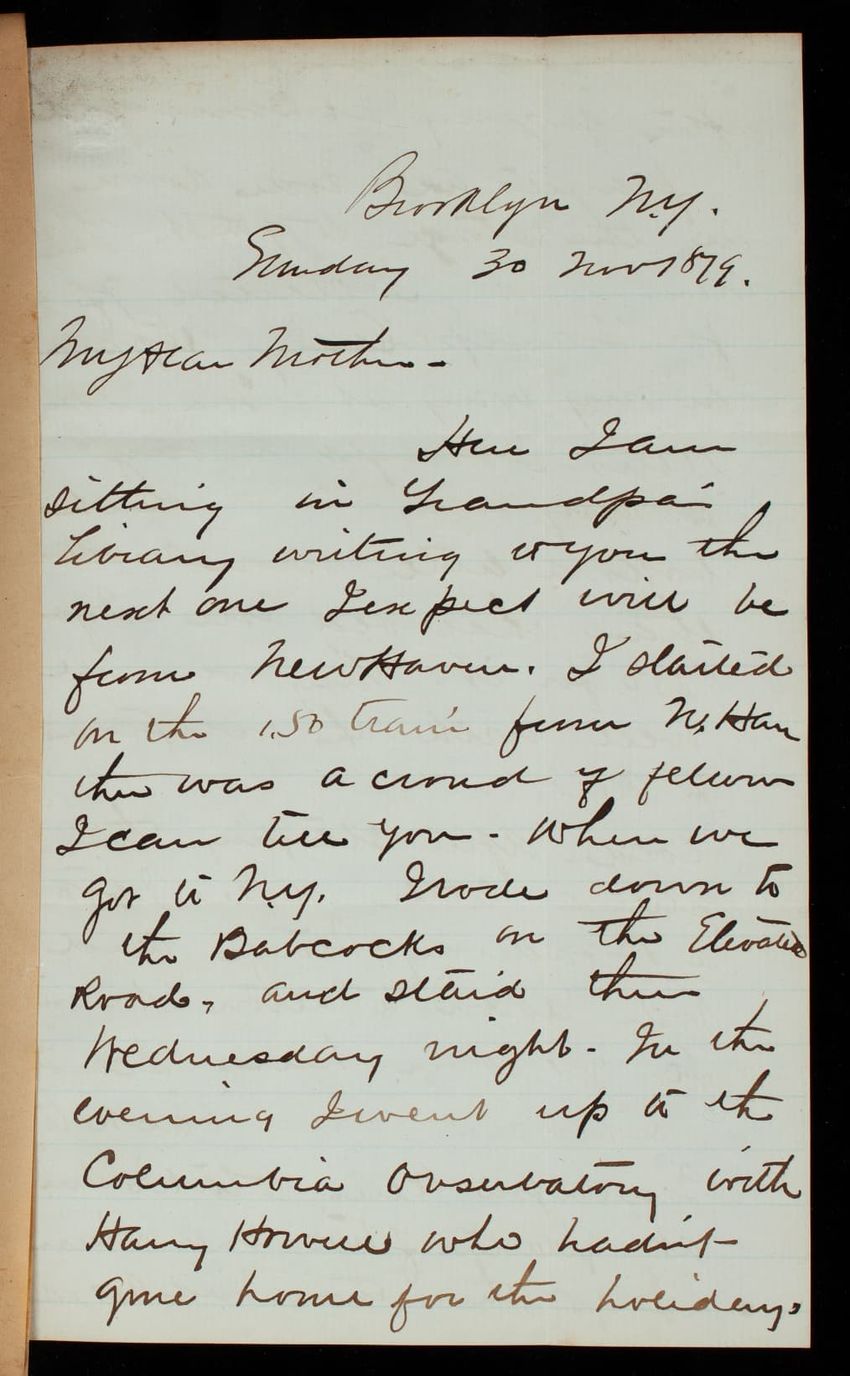 Brooklyn N.Y.
Sunday 30 Nov 1879.
My dear Mother -
Here I am
sitting in Grandpa's
library writing to you the
next one I expect will be
from New Haven. I started
on the 1.50 train from N. Hav
there was a crowd of fellows
I can tell you - When we
got to N.Y. I rode down to
the Babcocks on the Elevated
Road, and staid there
Wednesday night - In the
evening I went up to the
Columbia Observatory with
Harry who hadn't
gone home for the holidays